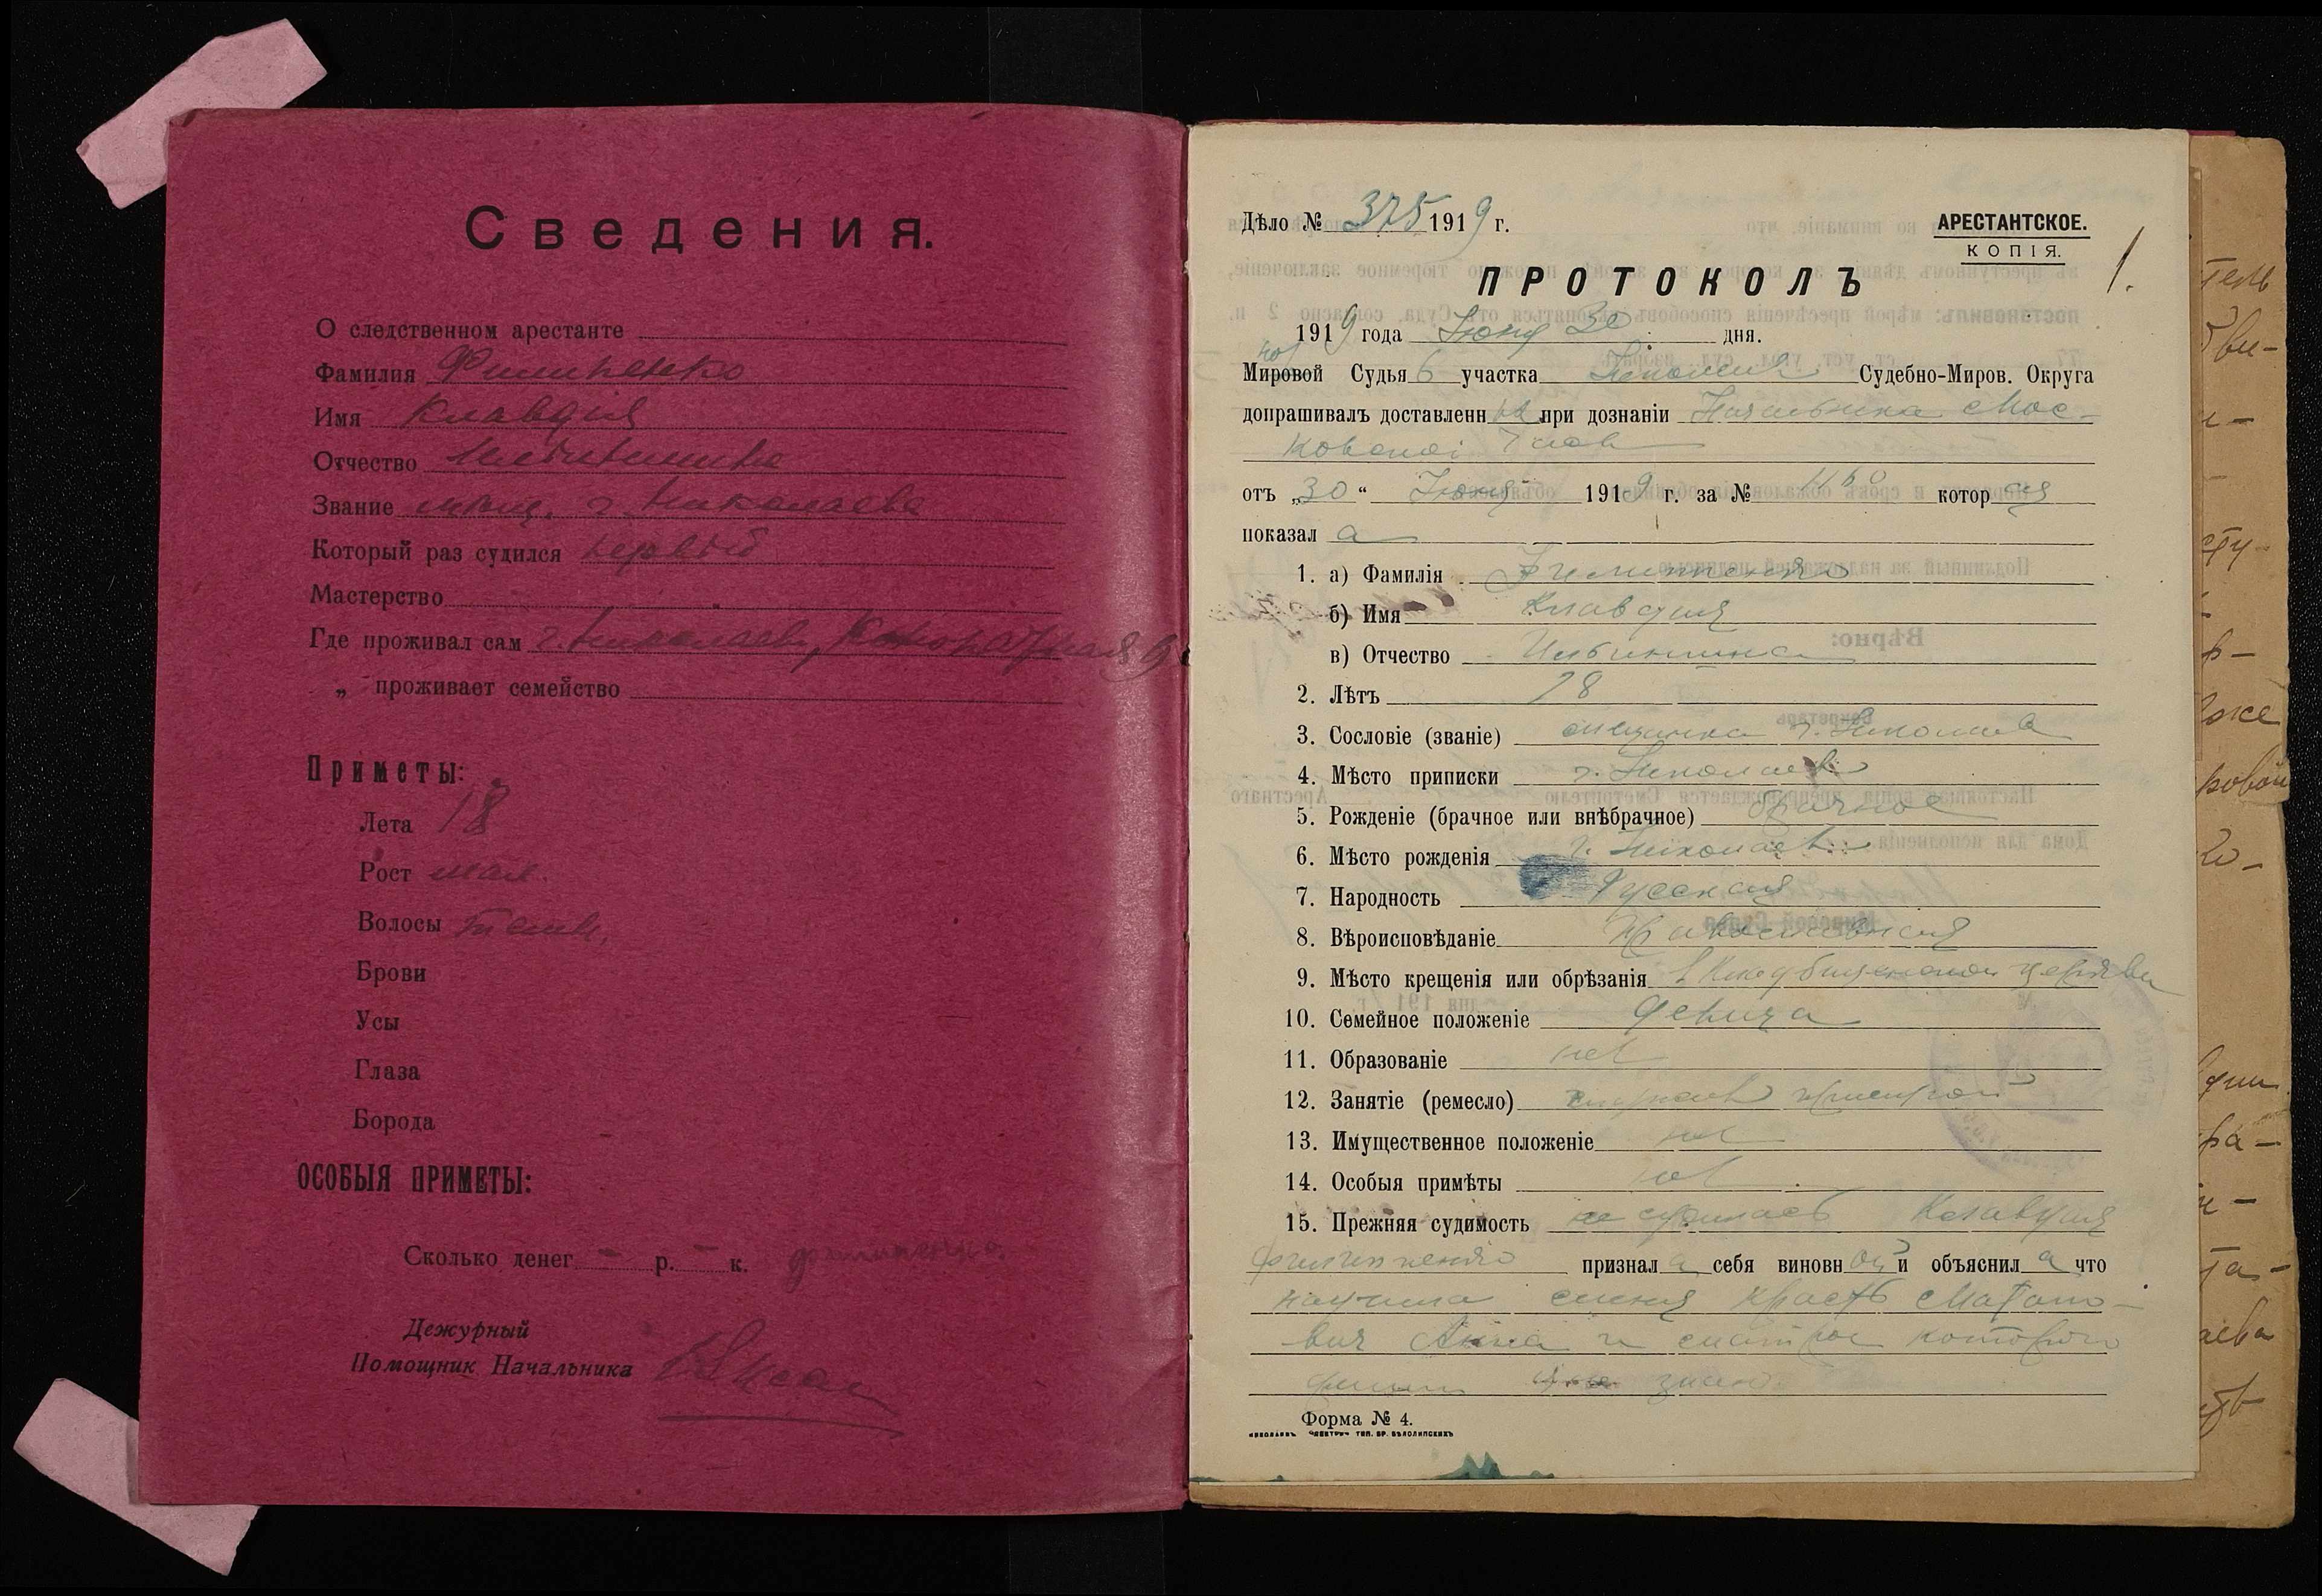 Сведения.
О следственном арестанте
Фамилия Филипенко
Имя Клавдия
Отчество
Звание мѣщ. г. Николаева
Который раз судился первый
Мастерство
Где проживал сам г. Николаев,
„ проживает семейство
Приметы:
Лета 18
Рост мал.
Волосы темн.
Брови
Усы
Глаза
Борода
ОСОБЫЯ ПРИМЕТЫ:
Сколько денег - р. - к.
Дежурный
Помощник Начальника
Дѣло № 375 1919 г.
АРЕСТАНТСКОЕ.
КОПІЯ.
1.
ПРОТОКОЛЪ
1919 года Июня 30 дня.
Мировой Судья 6 участка Николаев Судебно-Миров. Округа
допрашивалъ доставленн при дознаніи Начальника Мос-
ковской
отъ „30“ Июня 1919 г. за № котор ая
показал а
1. а) Фамилія Филипенко
б) Имя Клавдия
в) Отчество Ильинишна
2. Лѣтъ 18
3. Сословіе (званіе) мещанка г. Николаева
4. Мѣсто приписки г. Николаев
5. Рожденіе (брачное или внѣбрачное) брачное
6. Мѣсто рожденія г. Николаев
7. Народность Русская
8. Вѣроисповѣданіе Православная
9. Мѣсто крещенія или обрѣзанія в Кладбищенской церкви
10. Семейное положеніе девица
11. Образованіе нет
12. Занятіе (ремесло)
13. Имущественное положеніе нет
14. Особыя примѣты нет
15. Прежняя судимость не судилась Клавдия
Филипенко признал а себя виновн ой и объяснил а что
научила меня красть
вич Анна и
знаю
Форма № 4.